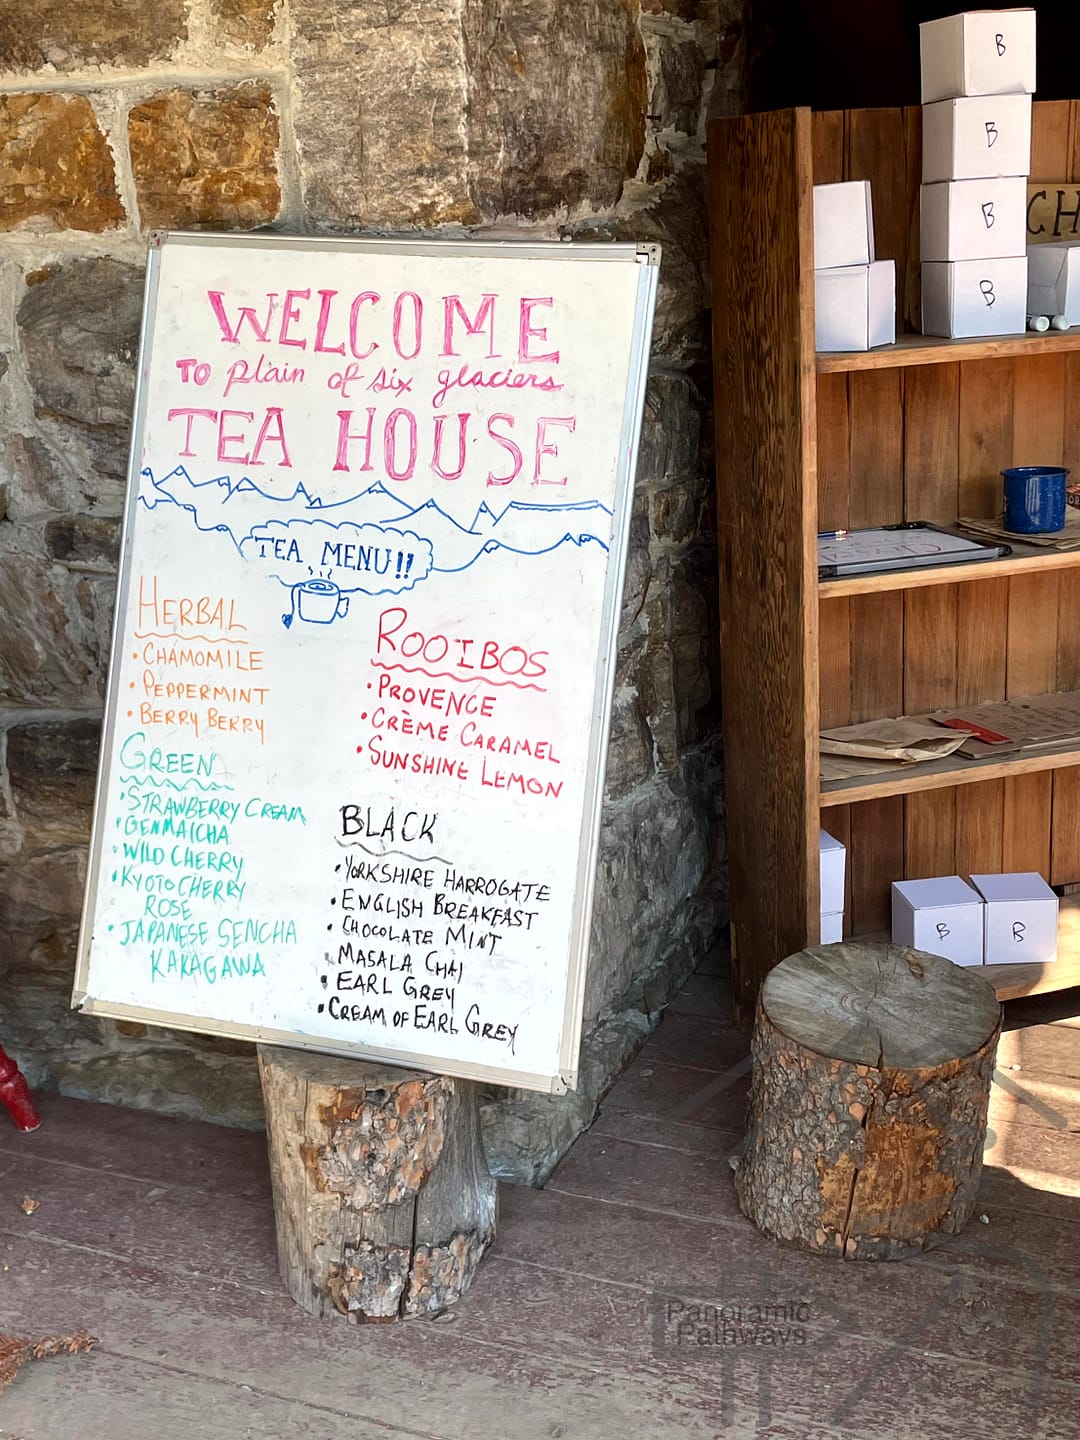 WELCOME
TO plain of six glaciers
TEA HOUSE
TEA MENU!!
HERBAL
• CHAMOMILE
• PEPPERMINT
• BERRY BERRY
GREEN
• STRAWBERRY CREAM
• GENMAICHA
• WILD CHERRY
• KYOTO CHERRY
ROSE
• JAPANESE SENCHA
KAKAGAWA
ROOIBOS
• PROVENCE
• CRÈME CARAMEL
• SUNSHINE LEMON
BLACK
• YORKSHIRE HARROGATE
• ENGLISH BREAKFAST
• CHOCOLATE MINT
• MASALA CHAI
• EARL GREY
• CREAM OF EARL GREY
B
B
B
B
CH
B
B
Panoramic
Pathways